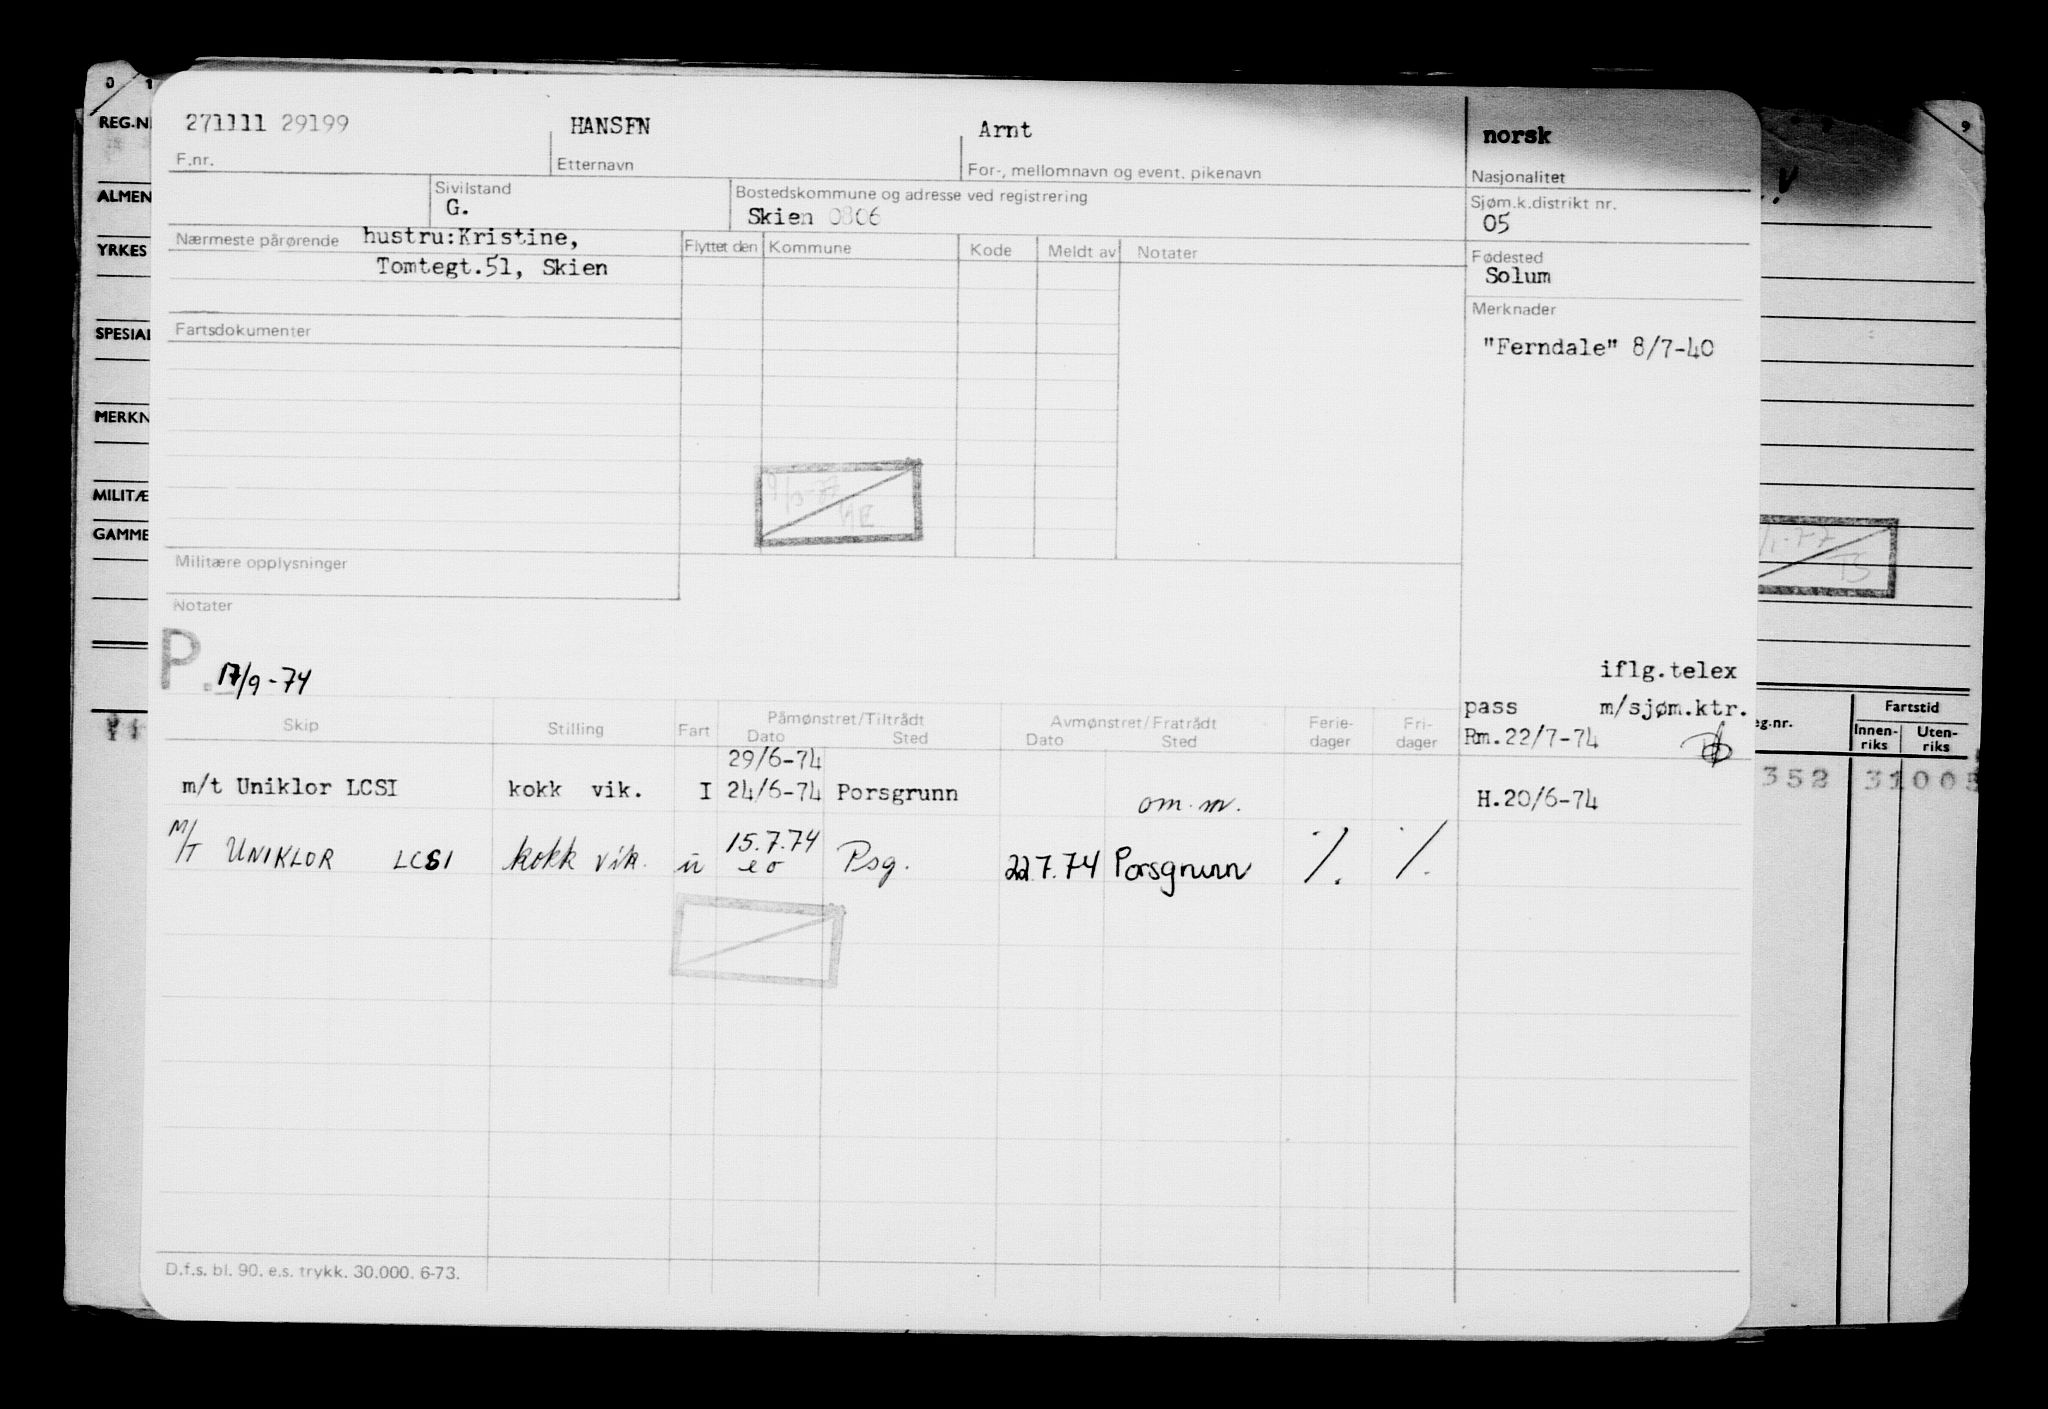 0 1 9
REG.N
ALMEN
YRKES
SPESIAL
MERKN
MILITÆ
GAMME
271111 29199
F.nr.
HANSEN
Etternavn
Arnt
For-, mellomnavn og event. pikenavn
norsk
Nasjonalitet
Sivilstand
G.
Bostedskommune og adresse ved registrering
Skien 0806
Sjøm.k.distrikt nr.
05
Nærmeste pårørende hustru:Kristine,
Tomtegt.51, Skien
Flyttet den Kommune Kode Meldt av Notater
Fødested
Solum
Merknader
"Ferndale" 8/7-40
Fartsdokumenter
Militære opplysninger
Notater
P. 17/9-74
iflg.telex
pass m/sjøm.ktr.
Rm.22/7-74
Skip Stilling Fart Påmønstret/Tiltrådt Avmønstret/Fratrådt Ferie-dager Fri-dager
Dato Sted Dato Sted
29/6-74
m/t Uniklor LCSI kokk vik. I 24/6-74 Porsgrunn om.m. H.20/6-74
M/T UNIKLOR LCSI kokk vik. u 15.7.74 Psg. 22.7.74 Porsgrunn ./. ./.
e o
D.f.s. bl. 90. e.s. trykk. 30.000. 6-73.
eg.nr.
Fartstid
Innen-riks Uten-riks
352 31005
/1-77
TS